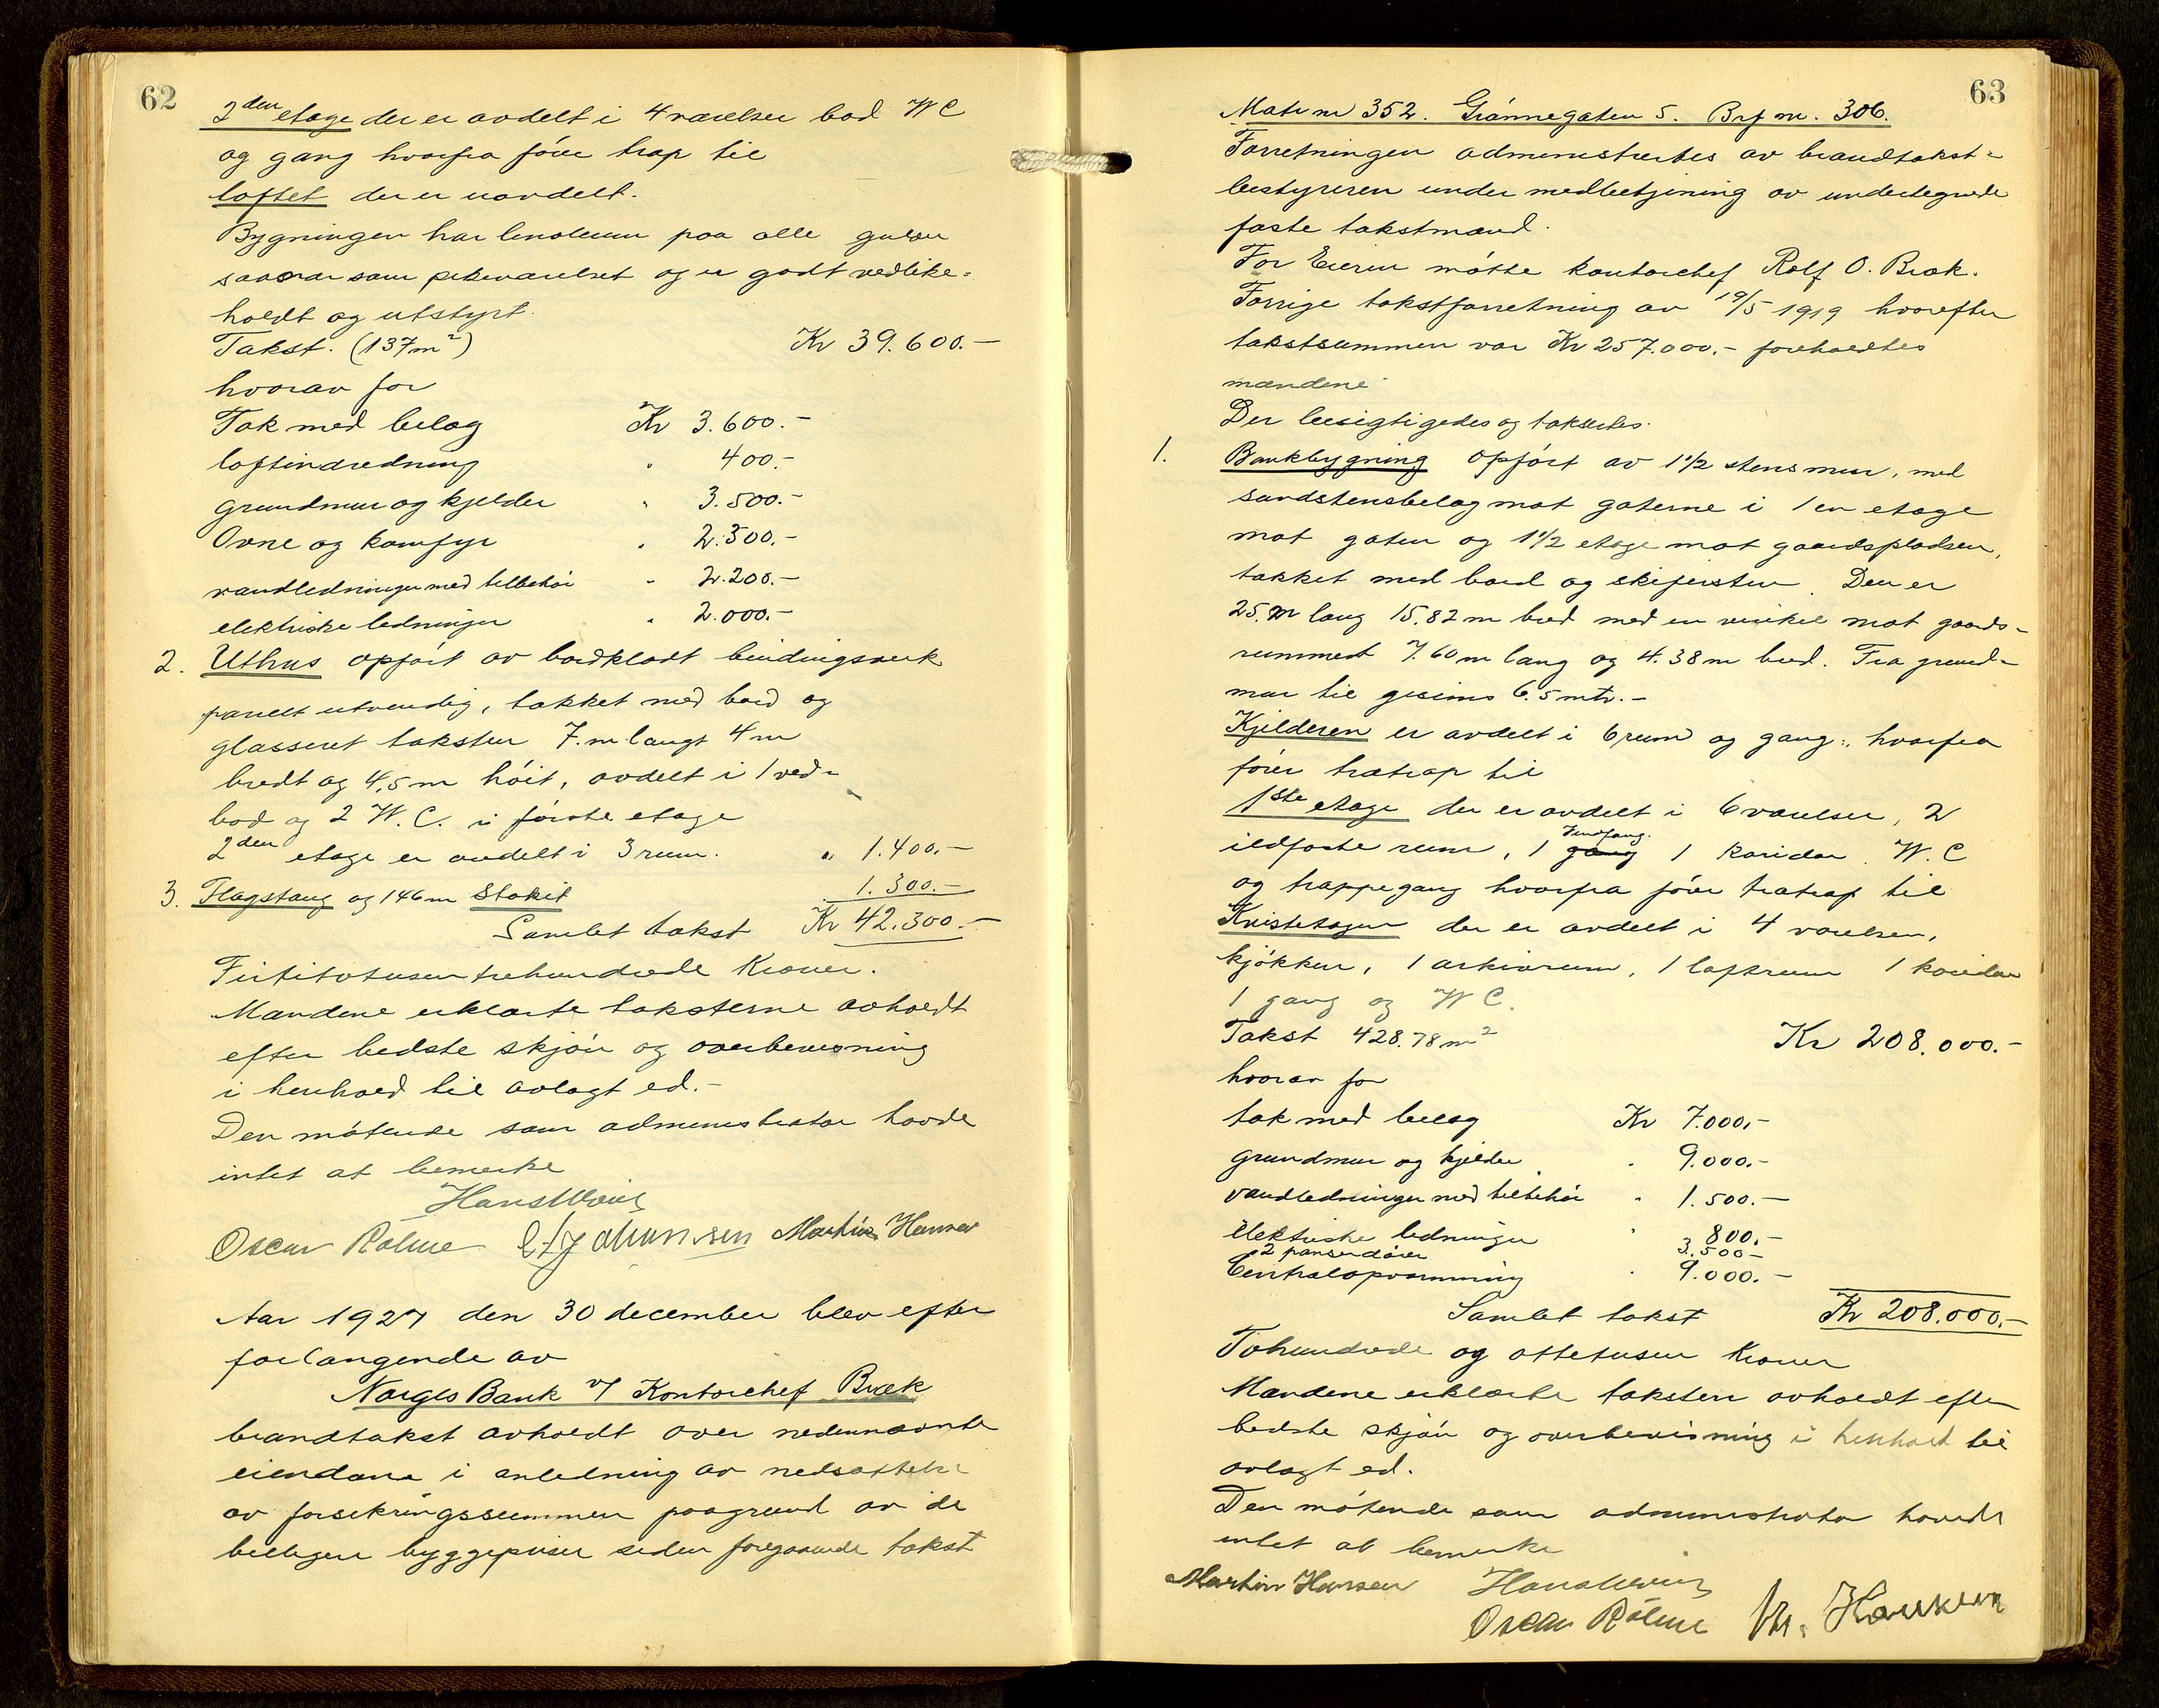 62
2den etage der er avdelt i 4 værelser bad W C
og gang hvorfra fører trap til
loftet der er uavdelt.
Bygningen har linoleum paa alle gulver
saavar som pikeværelset og er godt vedlike-
holdt og utstyrt.
Takst. (137m²) Kr 39.600.-
hvorav for
Tak med belæg Kr 3.600.-
loftindredning " 400.-
grundmur og kjelder " 3.500.-
Ovne og komfyr " 2.300.-
vandledninger med tilbehör " 2.200.-
elektriske ledninger " 2.000.-
2. Uthus opfört av bordklædt bindingsverk
panelt utvendig, tækket med bord og
glasseret taksten 7.m langt 4m
bredt og 4,5m höit, avdelt i 1 ved-
bod og 2 W.C. i förste etage
2den etage er avdelt i 3 rum. " 1.400.-
3. Flagstang og 146m Stakit 1.300.-
Samlet takst Kr 42.300.-
Firtitotusentrehundrede Kroner.
Mændene erklærte taksterne avholdt
efter bedste skjön og overbevisning
i henhold til avlagt ed.-
Den mötende som administrator havde
intet at bemerke
Oscar Rölme Johannsen Martin Hansen
Aar 1927 den 30 december blev efter
forlangende av
Norges Bank v/ Kontorchef Bræk
brandtakst avholdt over nedennævnte
eiendom i anledning av nedsættelse
av forsikringssummen paagrund av de
billigere byggepriser siden foregaaende takst
63
Matr nr 352. Grönnegaten 5. Brf nr. 306.
Forretningen administrertes av brandtakst-
bestyreren under medbetjening av undertegnede
faste takstmænd.
For Eieren mötte kontorchef Rolf O. Bræk.
Forrige takstforretning av 19/5 1919 hvorefter
takstsummen var Kr 257.000.- foreholdtes
mændene
Der besigtigedes og taksertes.
1. Bankbygning opfört av 1½ stensmur, med
sandstensbelæg mot gaterne i 1 en etage
mot gaten og 1½ etage mot gaardspladsen,
tækket med bord og skifersten. Den er
25.m lang 15.82 m bred med en vinkel mot gaards-
rummet 7.60 m lang og 4.38 m bred. Fra grund-
mur til gesims 6.5 mtr.-
Kjelderen er avdelt i 6 rum og gang, hvorfra
förer trætrap til
1ste etage der er avdelt i 6 værelser, 2
Vindfang.
ildfaste rum, 1 gang 1 koridor. W.C
og trappegang hvorfra förer trætrap til
Kvistetagen der er avdelt i 4 værelser,
kjökken, 1 arkivrum, 1 loftrum 1 koridor
1 gang og W C.
Takst 428.78 m² Kr 208.000.-
hvorav for
tak med belæg Kr 7.000.-
grundmur og kjelder " 9.000.-
vandledninger med tilbehör " 1.500.-
elektriske ledninger " 800.-
2 panserdörer 3.500-
Centralopvarmning " 9.000.-
Samlet takst Kr 208.000.-
Tohundrede og ottetusen Kroner
Mændene erklærte taksten avholdt efter
bedste skjön og overbevisning i henhold til
avlagt ed.
Den mötende som administrator havde
intet at bemerke
Martin Hansen
Oscar Rölme